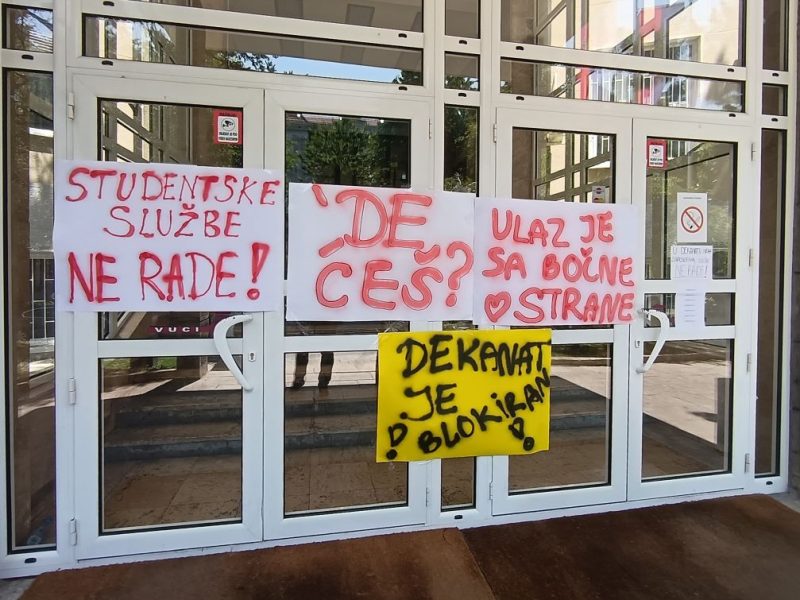 STUDENTSKE
SLUŽBE
NE RADE!
'DE
ĆEŠ?
ULAZ JE
SA BOČNE
♡ STRANE
DEKANAT
JE
! BLOKIRAN !
VUCI
U DEKANATU NEMA
NE RADE!